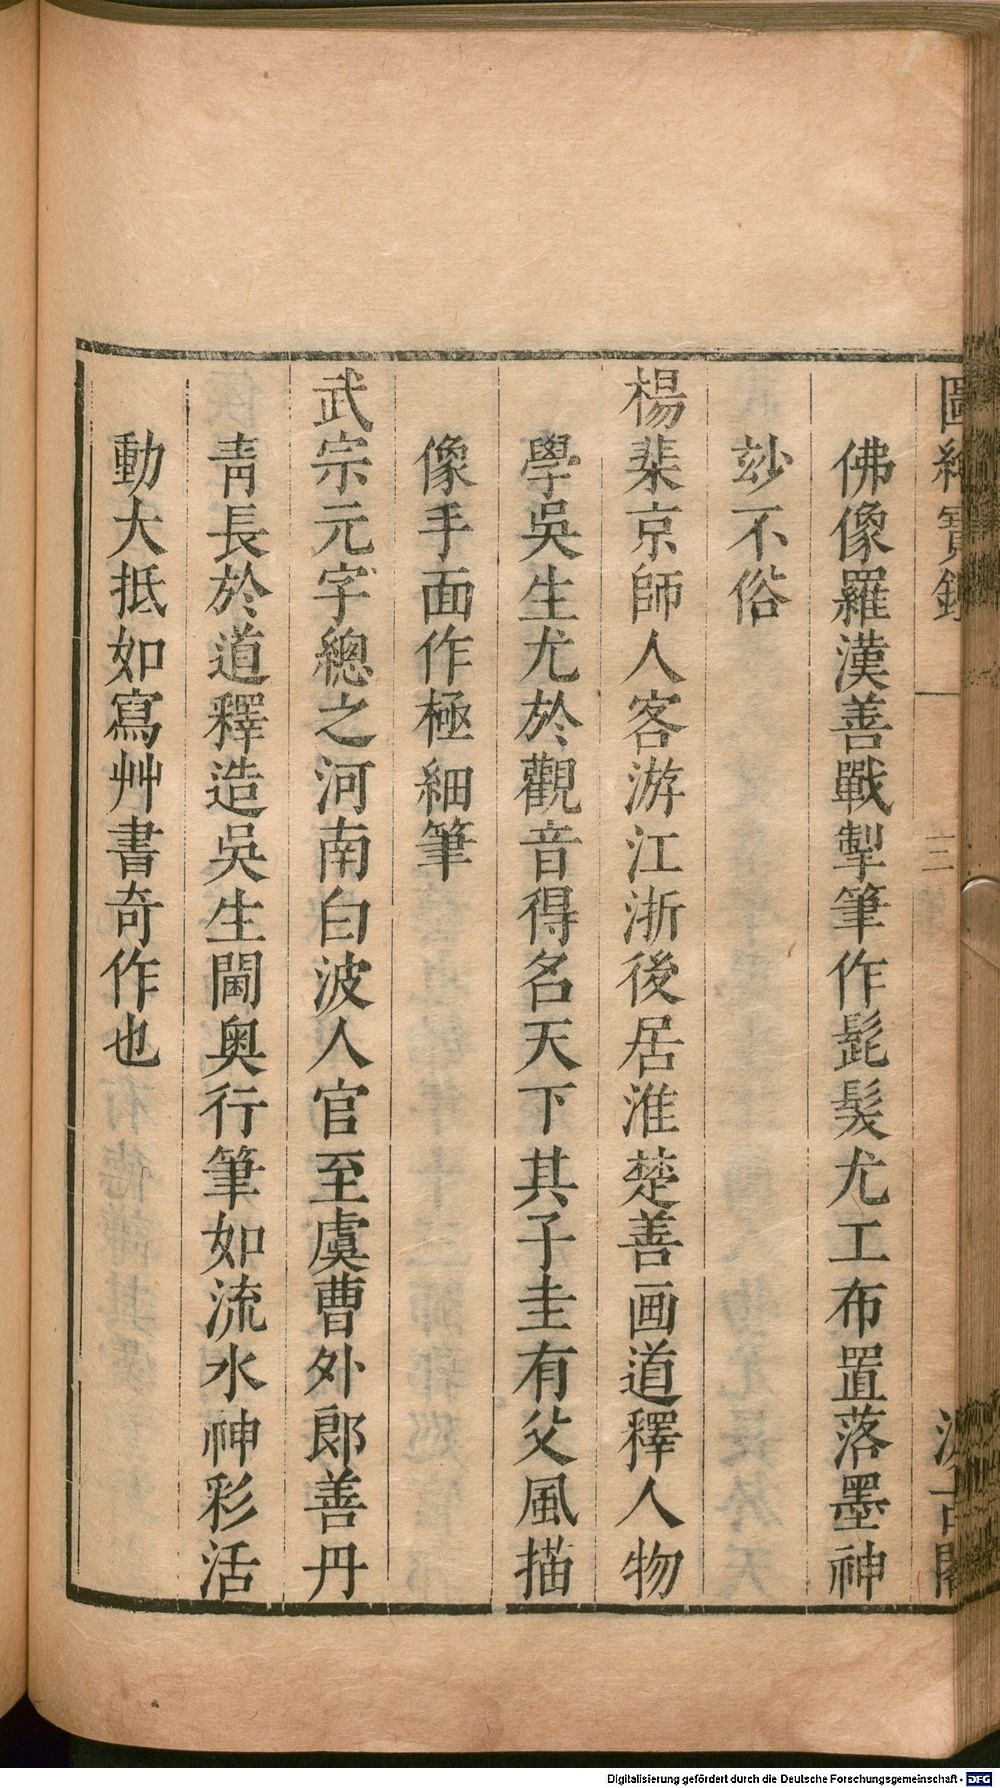 圖繪寶鑑
三
汲古閣
佛像羅漢善戰掣筆作髭髮尤工布置落墨神
玅不俗
楊棐京師人客游江浙後居淮楚善画道釋人物
學吳生尤於觀音得名天下其子圭有父風描
像手面作極細筆
武宗元字總之河南白波人官至虞曹外郎善丹
靑長於道釋造吳生閫奥行筆如流水神彩活
動大抵如寫艸書奇作也
Digitalisierung gefördert durch die Deutsche Forschungsgemeinschaft - DFG